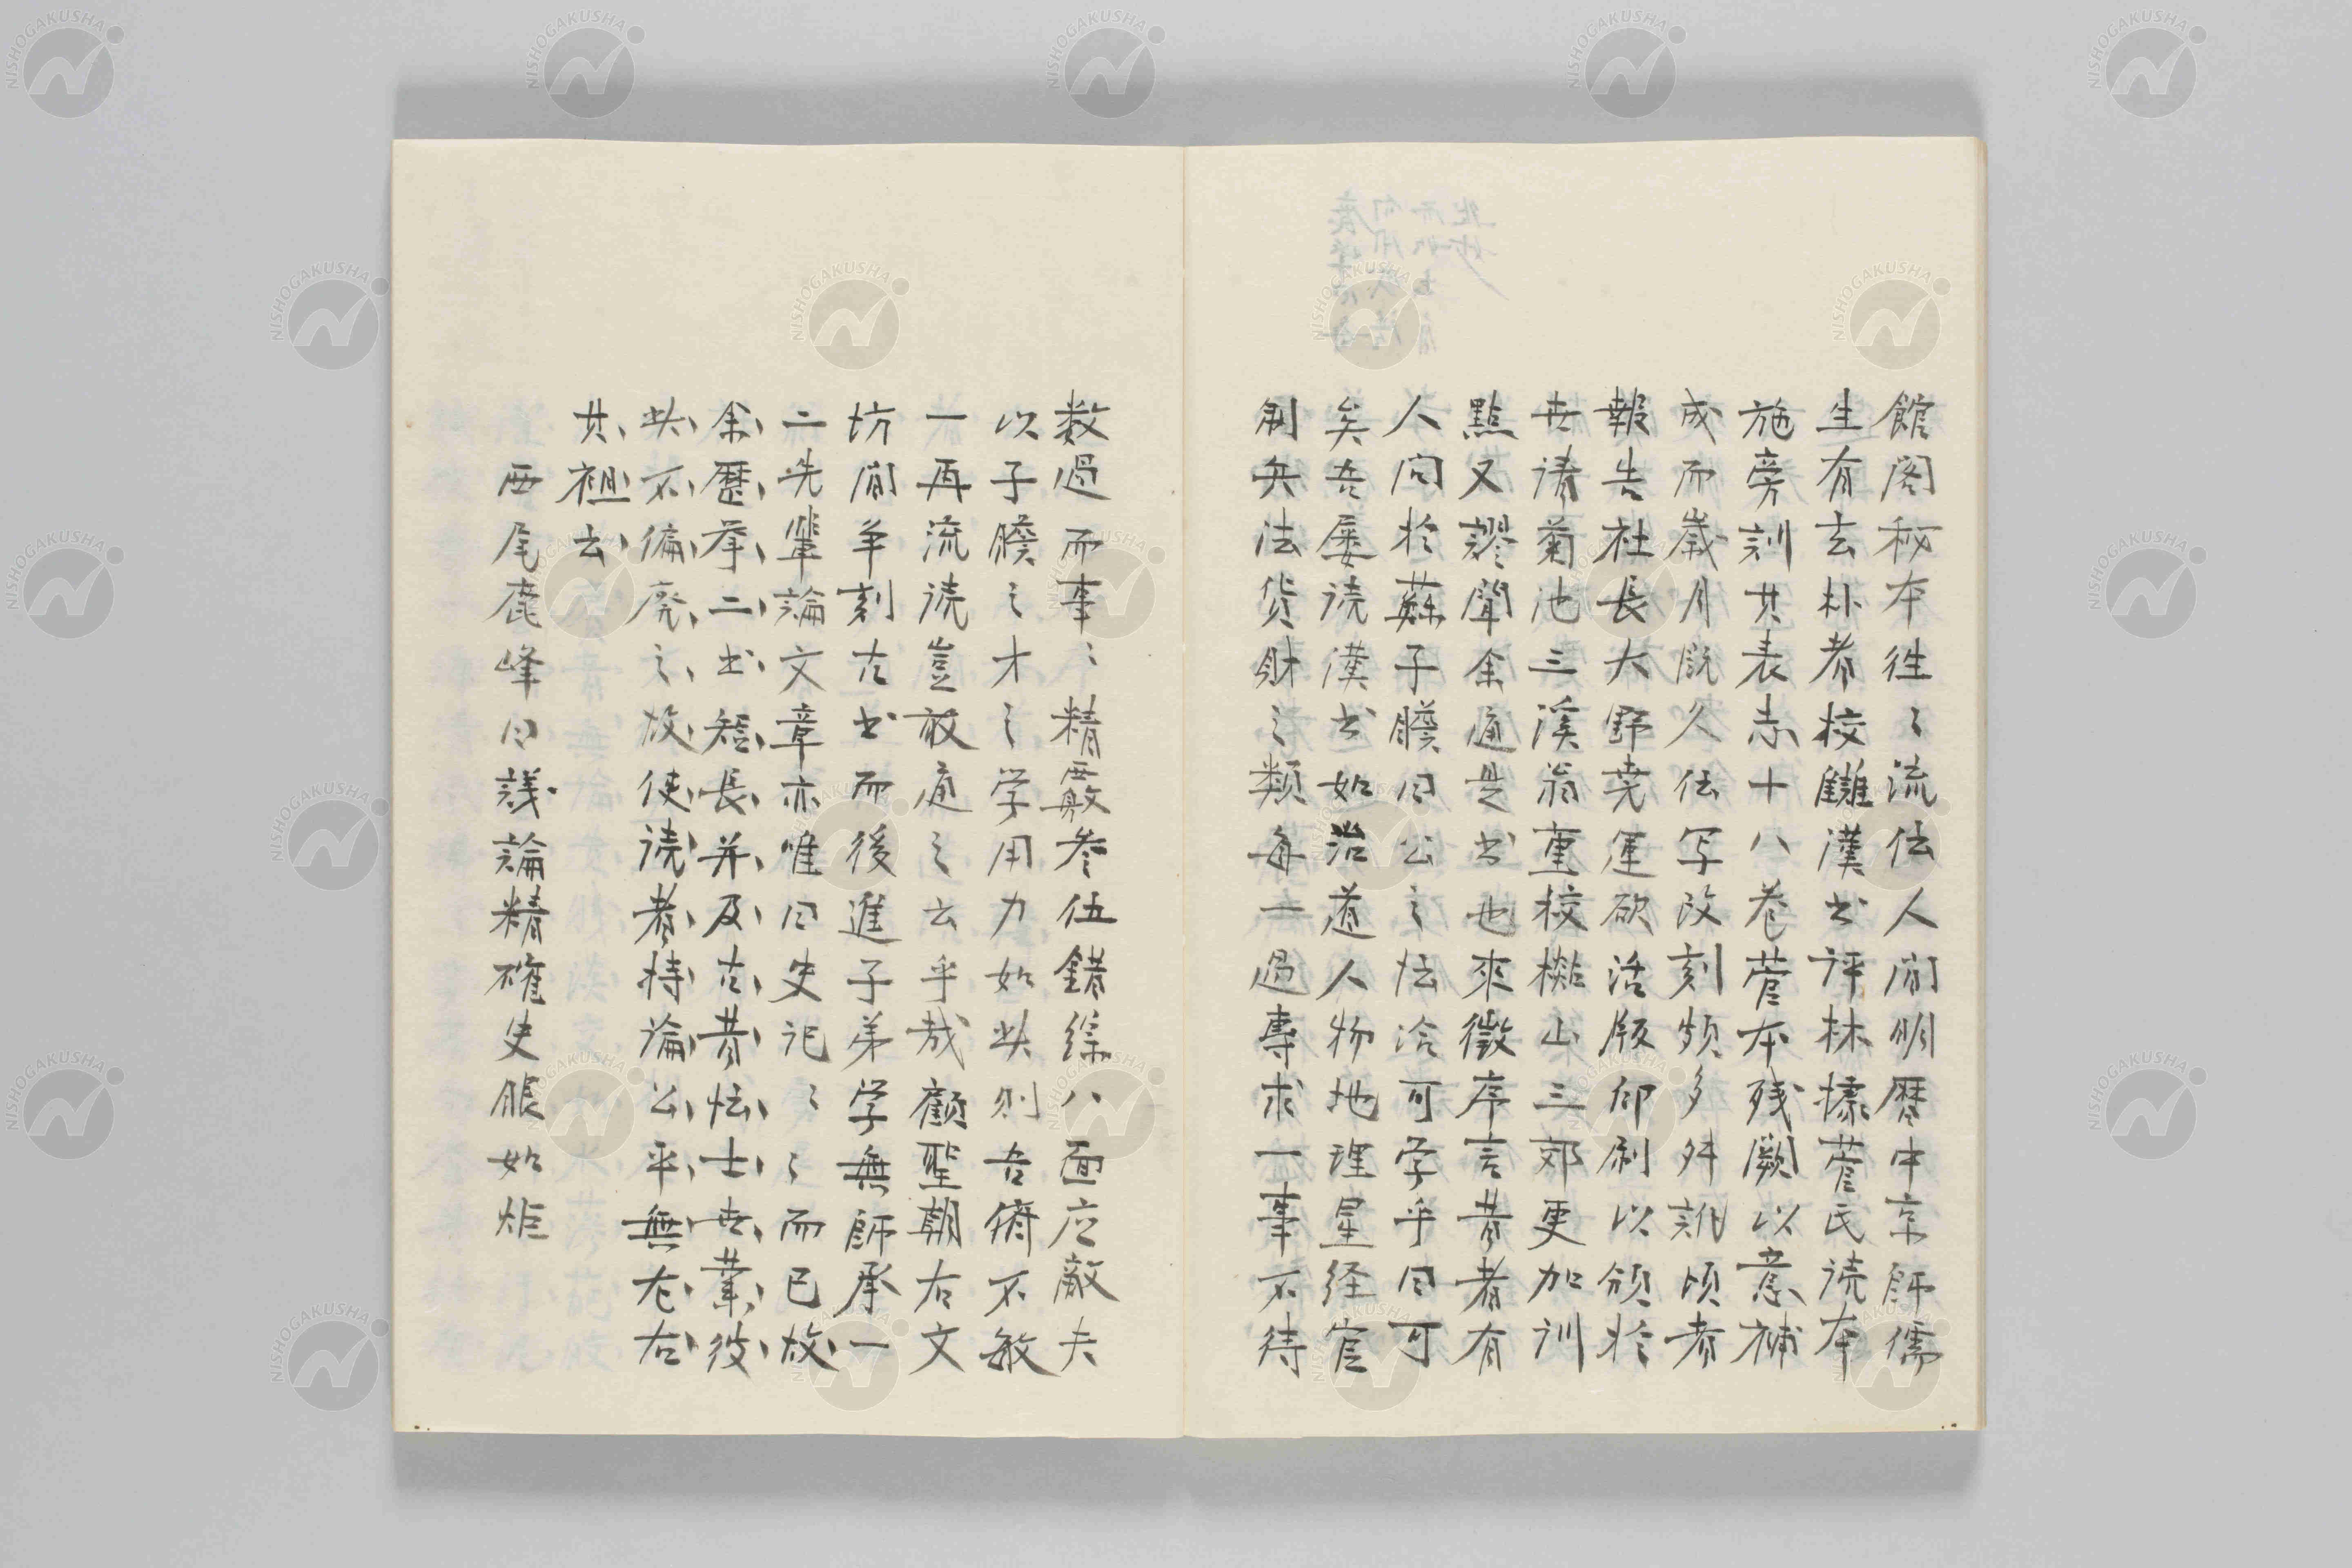 館閣秘本往々流伝人間明暦中京師儒
生有玄朴者校讎漢書評林據菅氏読本
施旁訓其表志十八卷菅本残闕以意補
成而歳月既久伝写改刻頗多舛訛頃者
報告社長大野堯運欲活版印刷以頒於
世請菊池三溪翁重校櫟山三郊更加訓
點又謬聞余通是書也來徴序言昔者有
人问於蘇子瞻曰公之博洽可学乎曰可
矣吾屡読漢书如治道人物地理星経官
制兵法货財之類每一過專求一事不待
数過而事々精覈参伍錯綜八面应敵夫
以子瞻之才之学用力如此則吾儕不敏
一再流読豈敢通之云乎哉顧聖朝右文
坊间争刻古书而後進子弟学無師承一
二先輩論文章亦唯曰史記々々而已故
余歷举二书短長并及古昔博士世業彼
此不偏廃之故使読者持論公平無左右
其袒云
西尾鹿峰曰議論精確史眼如炬
NISHOGAKUSHA